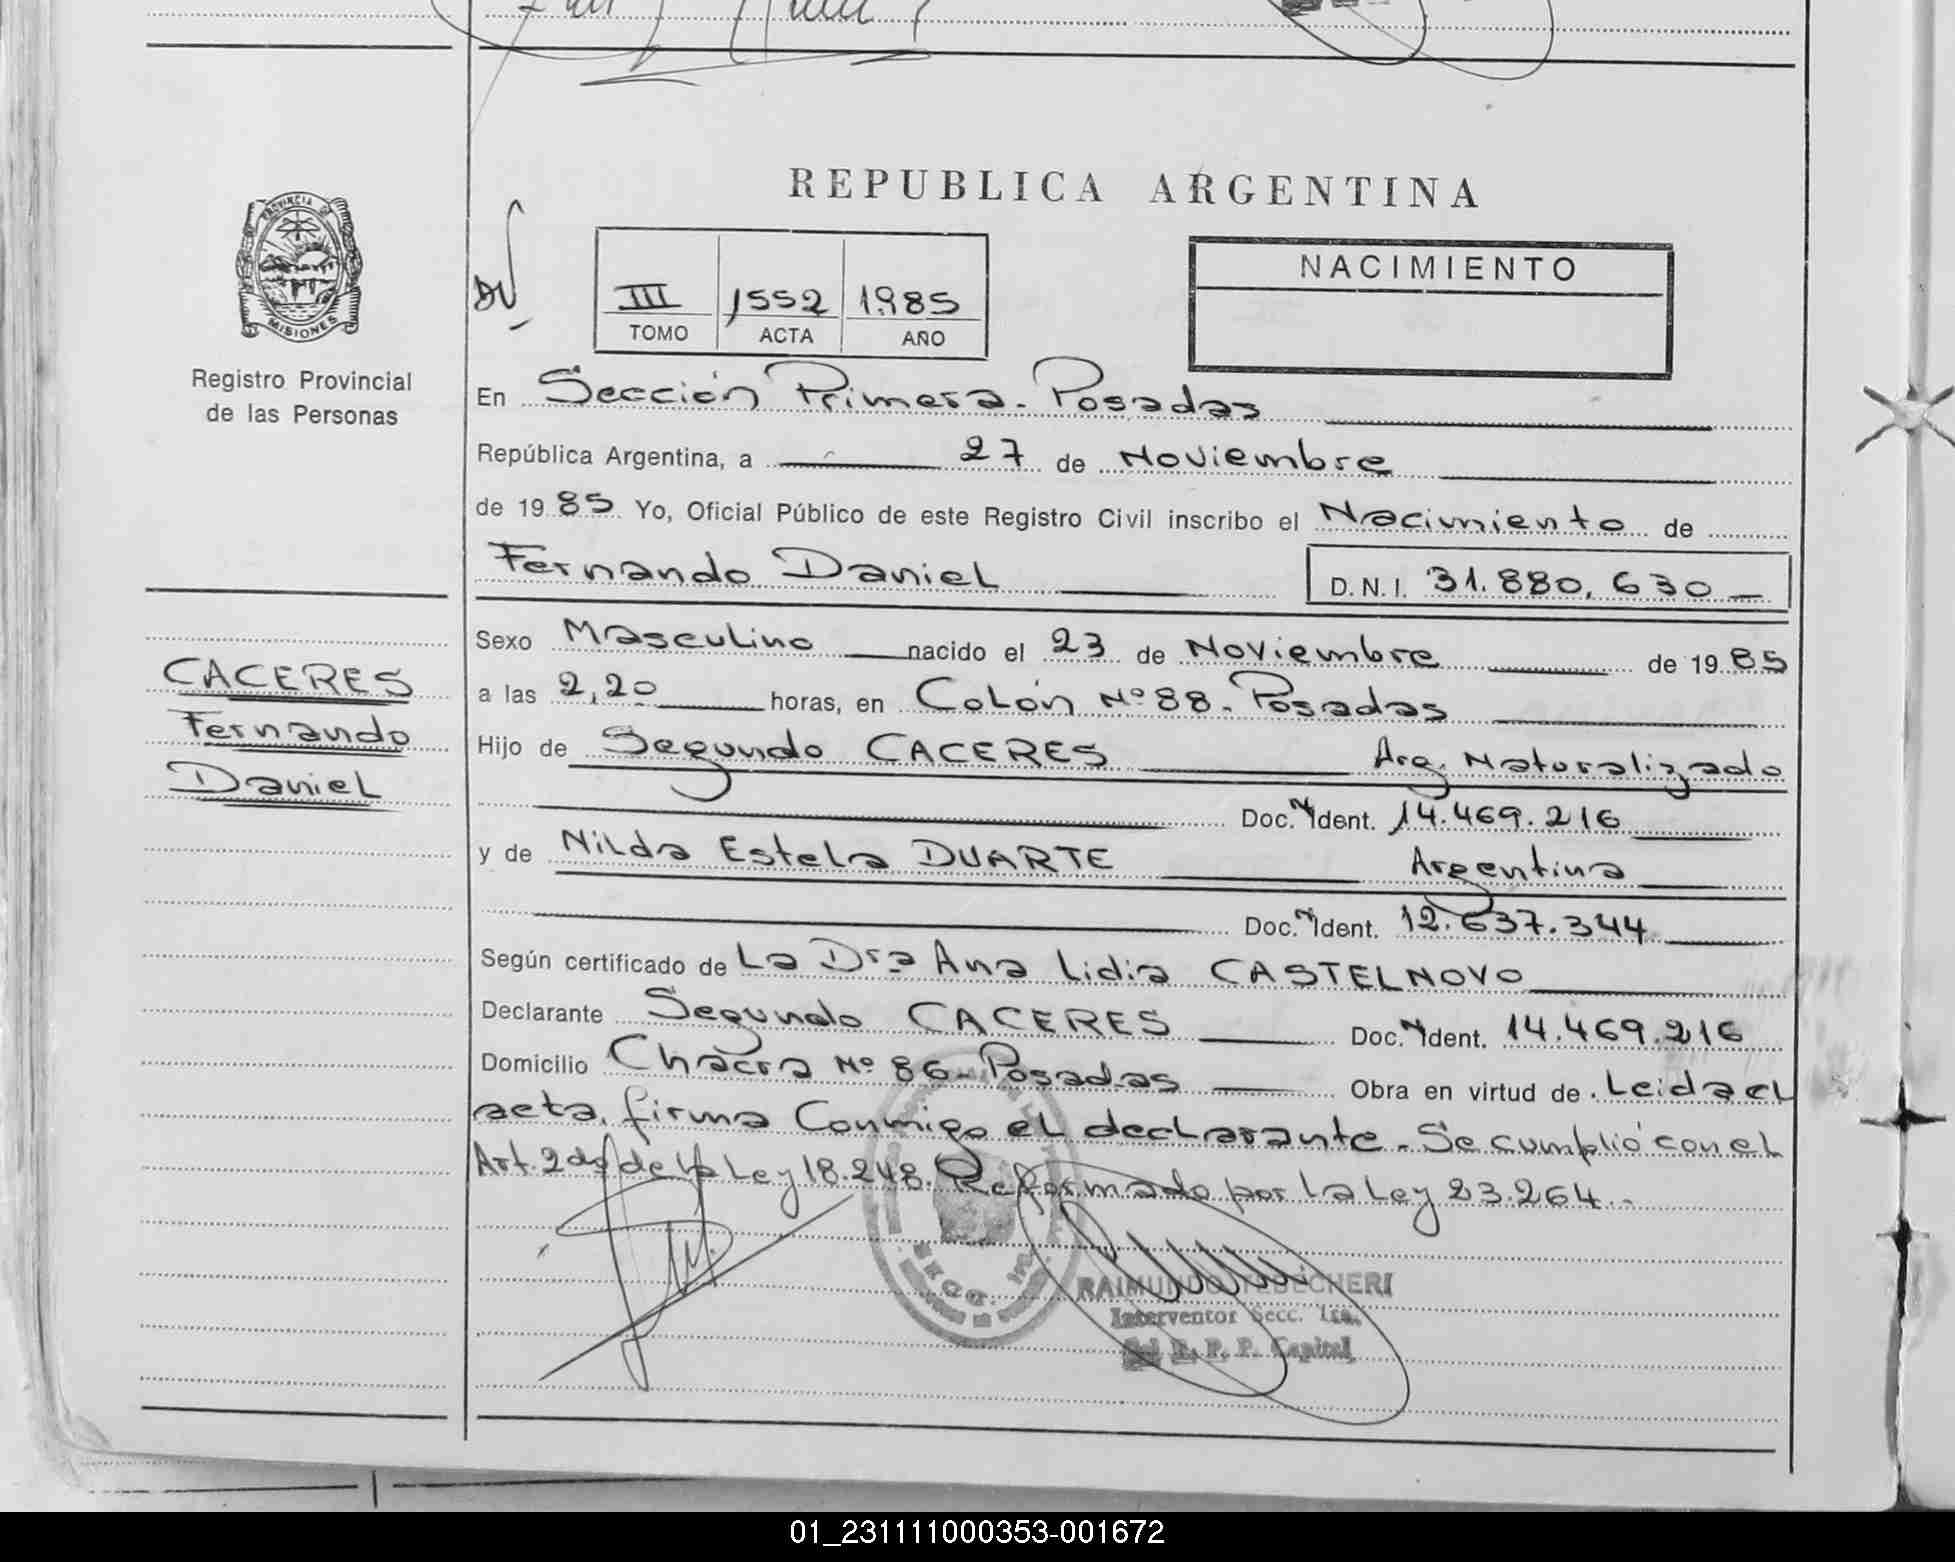 REPUBLICA ARGENTINA
PROVINCIA DE
MISIONES
Registro Provincial
de las Personas
III 1552 1985
TOMO ACTA AÑO
NACIMIENTO
En Sección Primera. Posadas
República Argentina, a 27 de Noviembre
de 1985 Yo, Oficial Público de este Registro Civil inscribo el Nacimiento de
Fernando Daniel D.N.I. 31.880.630
Sexo Masculino nacido el 23 de Noviembre de 1985
CACERES
Fernando
Daniel
a las 2,20 horas, en Colón Nº 88. Posadas
Hijo de Segundo CACERES Arg. Naturalizado
Doc. N Ident. 14.469.216
y de Nilda Estela DUARTE Argentina
Doc. N Ident. 12.637.344
Según certificado de La Dra Ana Lidia CASTELNOVO
Declarante Segundo CACERES Doc. N Ident. 14.469.216
Domicilio Chacra Nº 86. Posadas Obra en virtud de Leida el
acta, firma conmigo el declarante. Se cumplió con el
Art. 2do de la Ley 18.248. Reformado por la Ley 23.264.
RAIMUNDO
Interventor Secc. 1ra.
del R. P. P. Capital
01_231111000353-001672